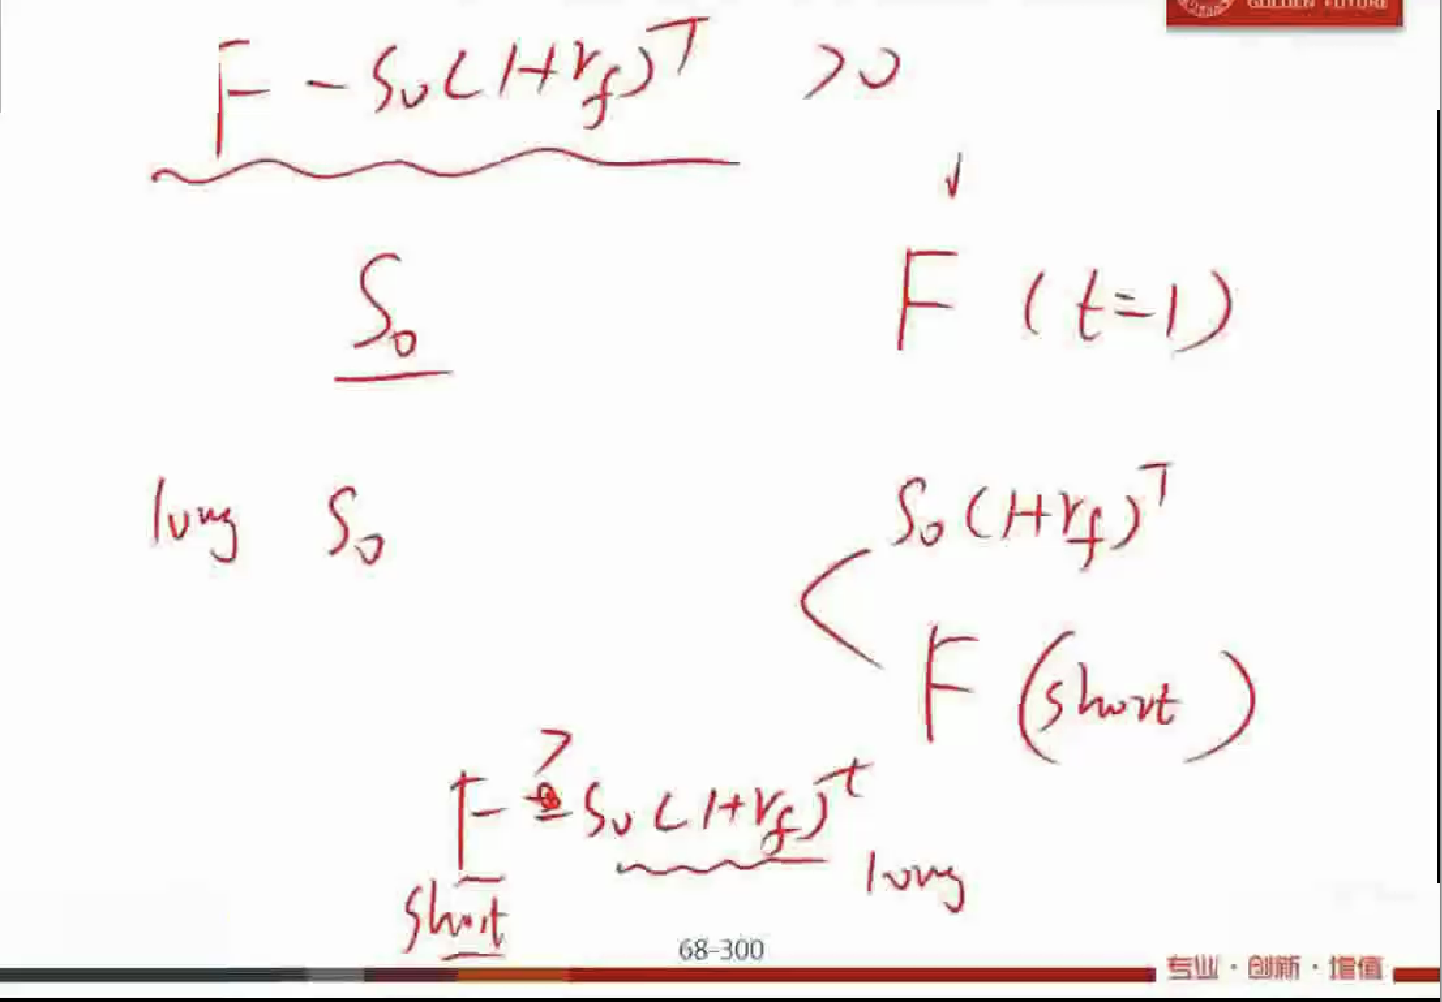 GOLDEN FUTURE
F - S₀(1+r_f)^T > 0
↓
S₀ F (t=1)
long S₀ S₀(1+r_f)^T
F (short)
>
F = S₀(1+r_f)^t
short long
68-300
专业·创新·增值